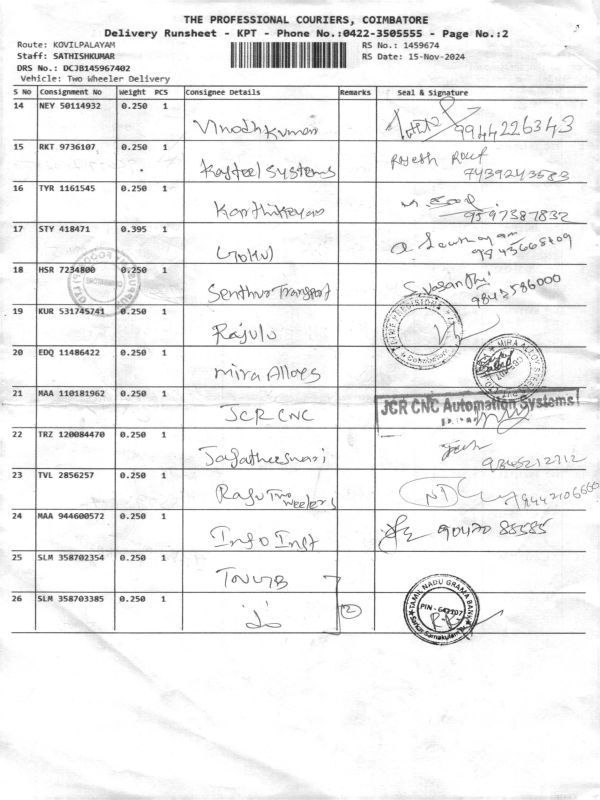 THE PROFESSIONAL COURIERS, COIMBATORE
Delivery Runsheet - KPT - Phone No.:0422-3505555 - Page No.:2
Route: KOVILPALAYAM RS No.: 1459674
Staff: SATHISHKUMAR RS Date: 15-Nov-2024
DRS No.: DCJB145967402
Vehicle: Two Wheeler Delivery
S No Consignment No Weight PCS Consignee Details Remarks Seal & Signature
14 NEY 50114932 0.250 1 Vinodhkumar 9944226343
15 RKT 9736107 0.250 1 Kasteel Systems Rajesh 7439243583
16 TYR 1161545 0.250 1 Karthikeyan 9597387832
17 STY 418471 0.395 1 Gokul
18 HSR 7234800 0.250 1 Senthur Transport 9843586000
19 KUR 531745741 0.250 1 Rajulu
20 EDQ 11486422 0.250 1 Mira Alloys MIRA ALLOY STEEL
21 MAA 110181962 0.250 1 JCR CNC JCR CNC Automation Systems
22 TRZ 120084470 0.250 1 9845212712
23 TVL 2856257 0.250 1 Raju Two Wheelers
24 MAA 944600572 0.250 1 Info Inst 90470 88585
25 SLM 358702354 0.250 1 TNGB
26 SLM 358703385 0.250 1 2 TAMIL NADU GRAMA BANK
PIN - 642107